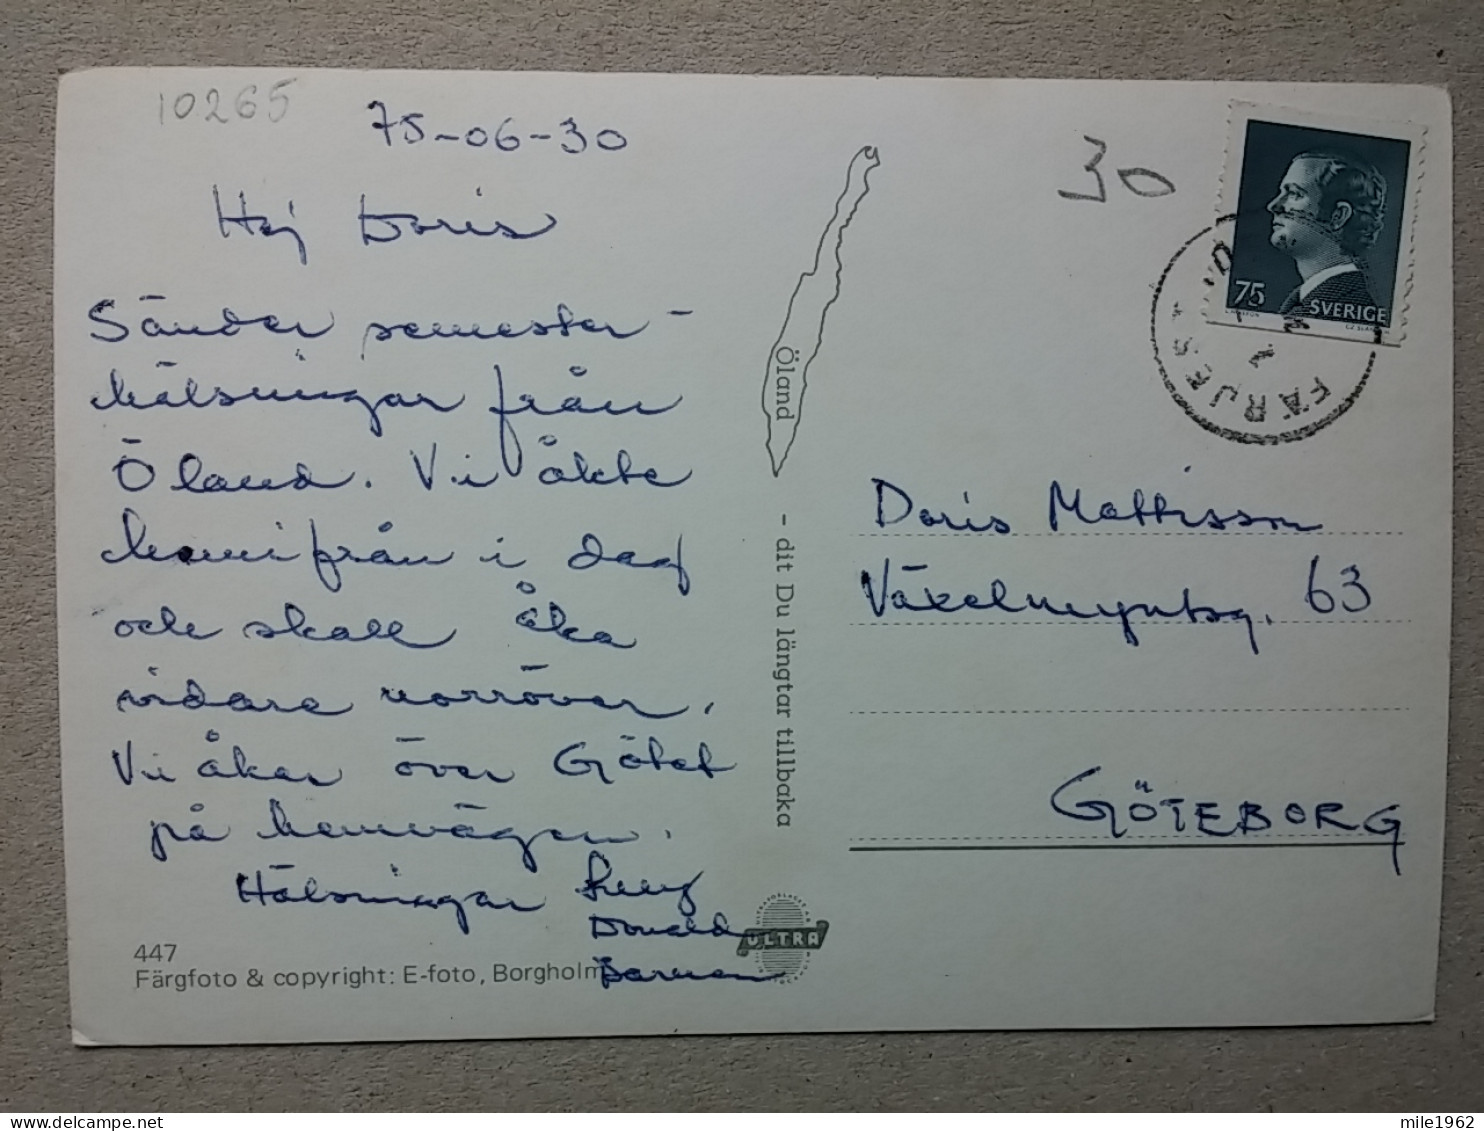 10265
75-06-30
Hej Doris
Sänder semester-
hälsningar från
Öland. Vi åkte
hemifrån i dag
och skall åka
vidare norröver.
Vi åker över Götet
på hemvägen.
Hälsningar
Donald
Barnen
447
Färgfoto & copyright: E-foto, Borgholm
ULTRA
Öland
- dit Du längtar tillbaka
30
75
SVERIGE
FÄRJEST
Doris Mattisson
Växelmyntsg. 63
GÖTEBORG
mile1962